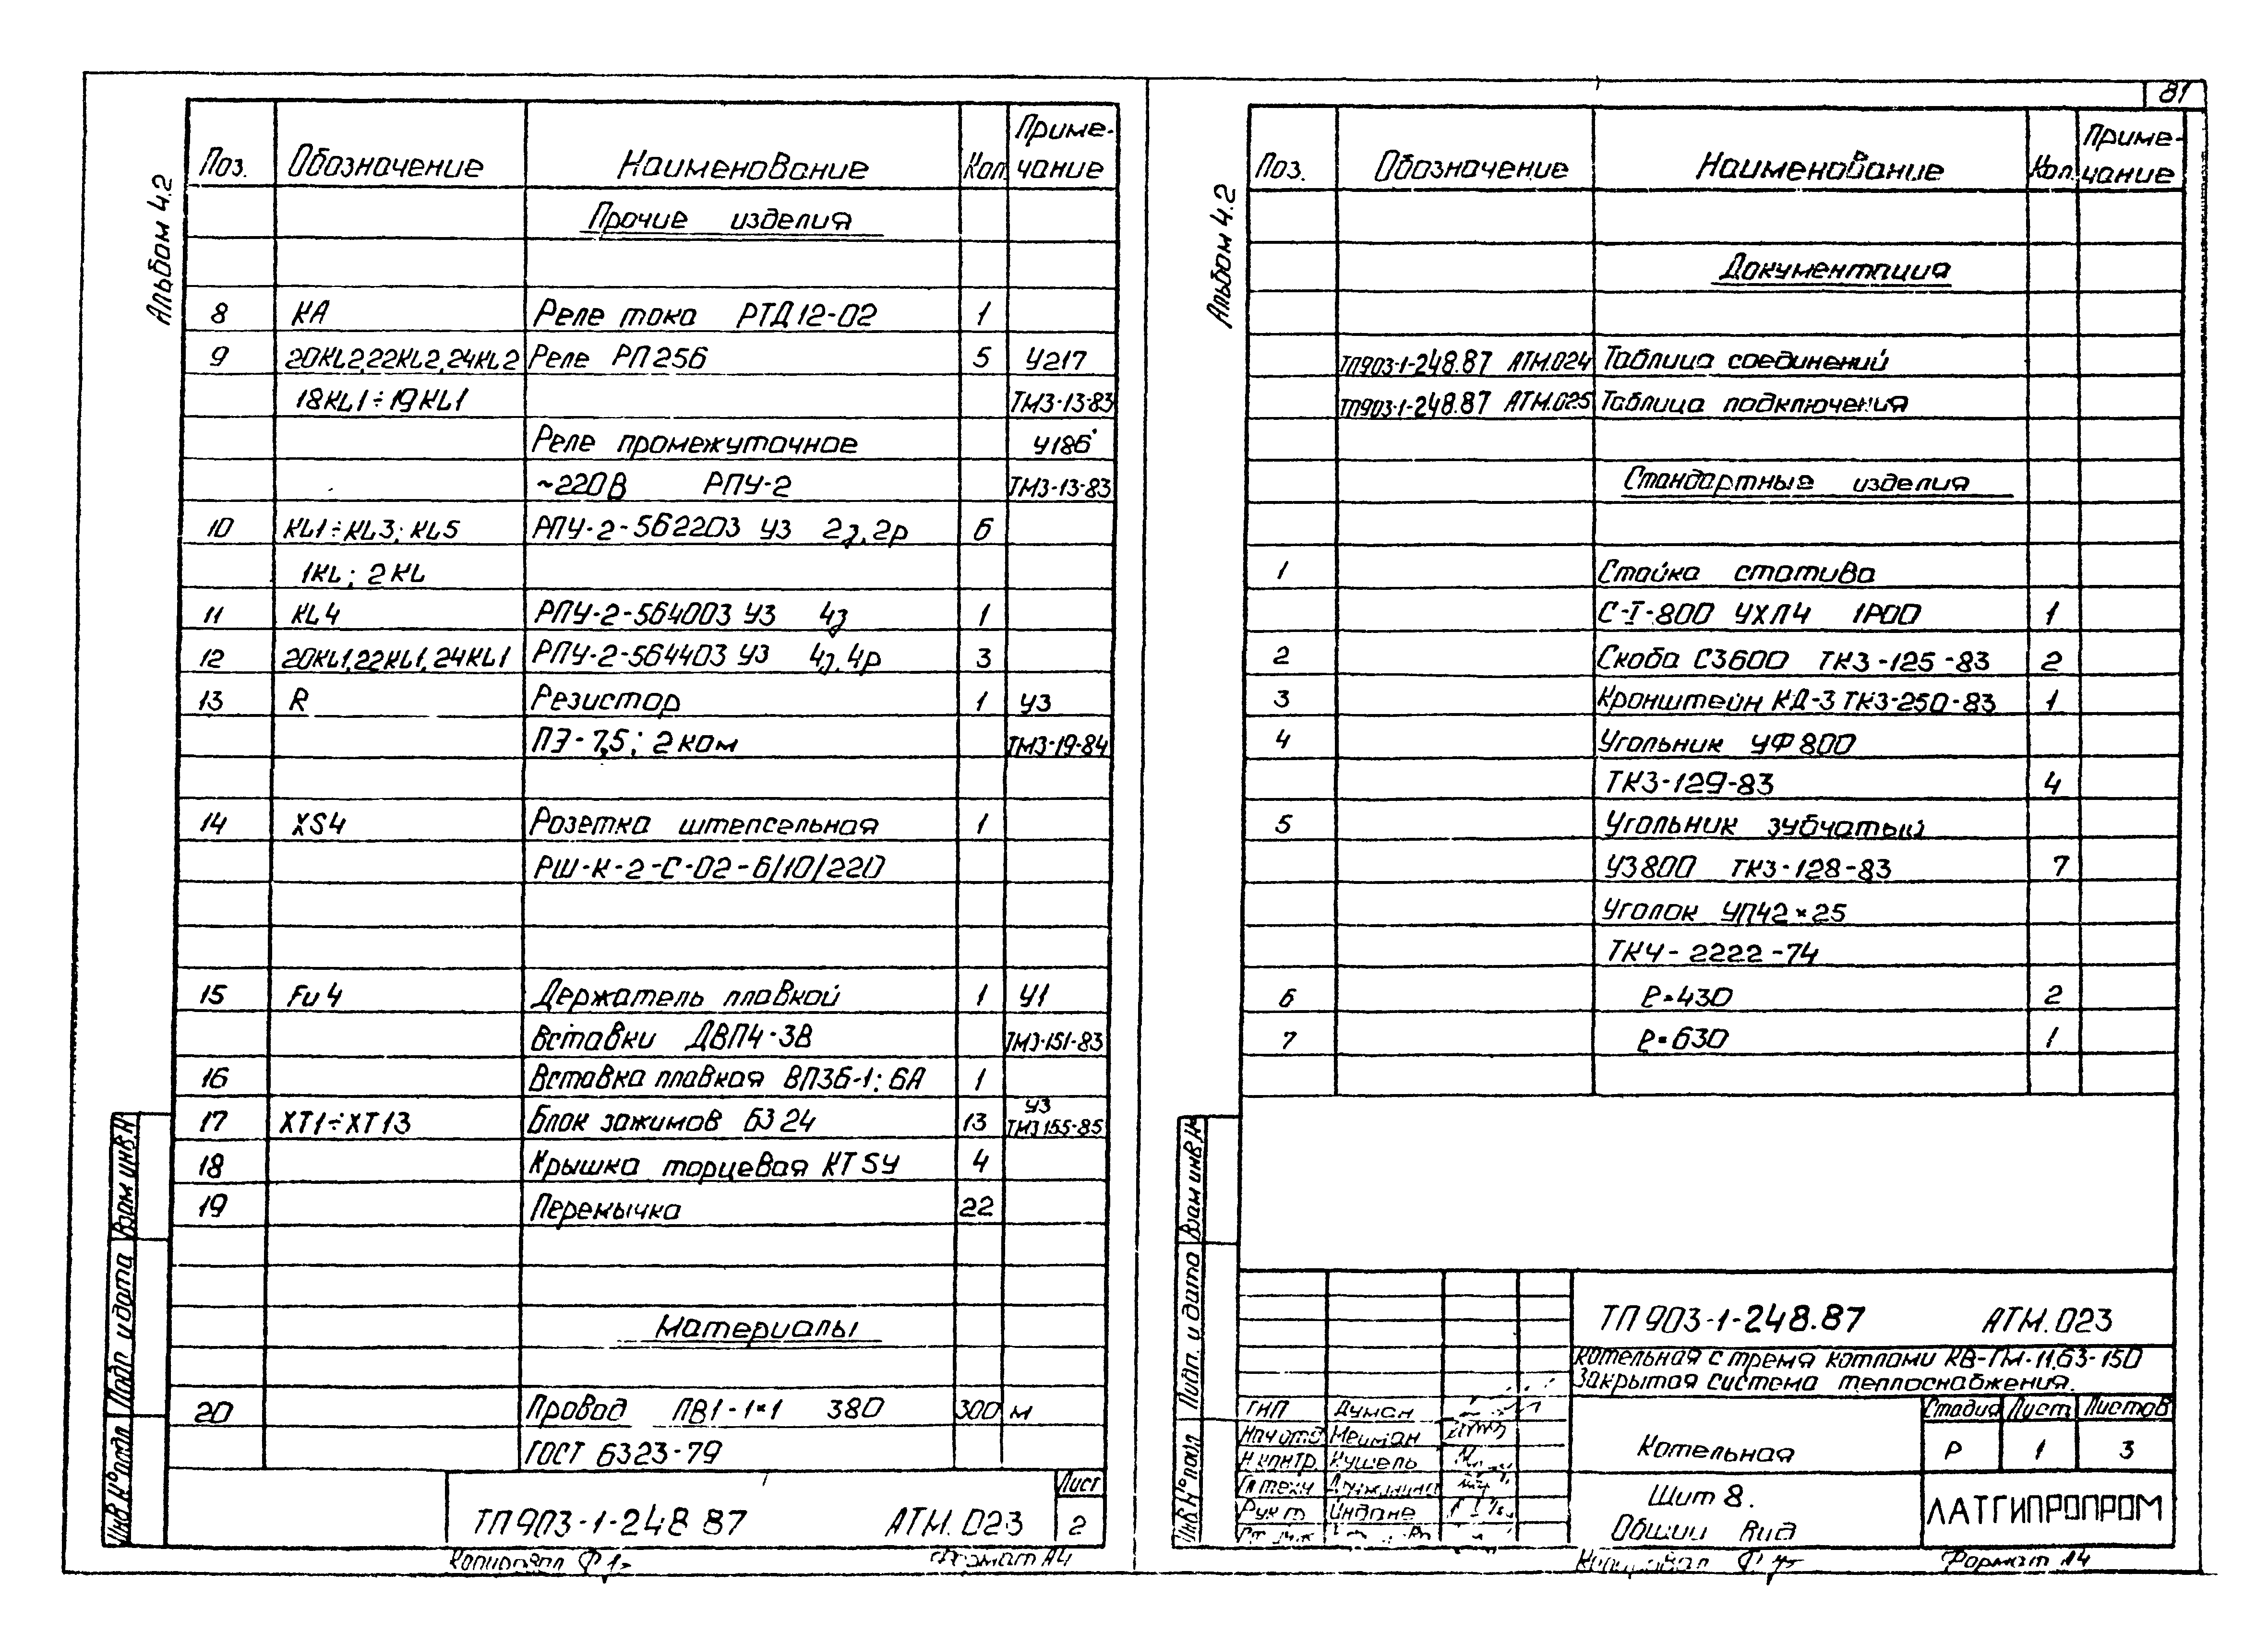 Альбом 4.2
Поз. Обозначение Наименование Кол. Приме-
чание
Прочие изделия
8 КА Реле тока РТД12-02 1
9 20KL2,22KL2,24KL2 Реле РП256 5 У217
18KL1÷19KL1 ТМ3-13-83
Реле промежуточное У186
~220В РПУ-2 ТМ3-13-83
10 KL1÷KL3; KL5 РПУ-2-562203 У3 2з,2р 6
1KL; 2KL
11 KL4 РПУ-2-564003 У3 4з 1
12 20KL1,22KL1,24KL1 РПУ-2-564403 У3 4з,4р 3
13 R Резистор 1 У3
ПЭ-7,5; 2ком ТМ3-19-84
14 XS4 Розетка штепсельная 1
РШ-К-2-С-02-6/10/220
15 Fu4 Держатель плавкой 1 У1
вставки ДВП4-3В ТМ3-151-83
16 Вставка плавкая ВП3Б-1; 6А 1
17 XT1÷XT13 Блок зажимов Б324 13 У3
ТМ3 155-85
18 Крышка торцевая КТ5У 4
19 Перемычка 22
Материалы
20 Провод ПВ1-1×1 380 300 м
ГОСТ 6323-79
ТП 903-1-248 87 АТМ.023 Лист
2
Копировал
Формат А4
Инв № подл Подп и дата Взам инв №
81
Альбом 4.2
Поз. Обозначение Наименование Кол. Приме-
чание
Документация
ТП903-1-248.87 АТМ.024 Таблица соединений
ТП903-1-248.87 АТМ.025 Таблица подключения
Стандартные изделия
1 Стойка статива
С-I-800 УХЛ4 IP00 1
2 Скоба С3600 ТК3-125-83 2
3 Кронштейн КД-3 ТК3-250-83 1
4 Угольник УФ800
ТК3-129-83 4
5 Угольник зубчатый
У3800 ТК3-128-83 7
Уголок УП42×25
ТК4-2222-74
6 ℓ=430 2
7 ℓ=630 1
ТП 903-1-248.87 АТМ.023
Котельная с тремя котлами КВ-ГМ-11,63-150
Закрытая система теплоснабжения.
ГИП Думан
Нач отд Нейман
Н контр Кушель
Гл техн
Рук гр Индане
Котельная
Стадия Лист Листов
Р 1 3
Щит 8.
Общий вид
ЛАТГИПРОПРОМ
Копировал
Формат А4
Инв № подл Подп. и дата Взам инв №